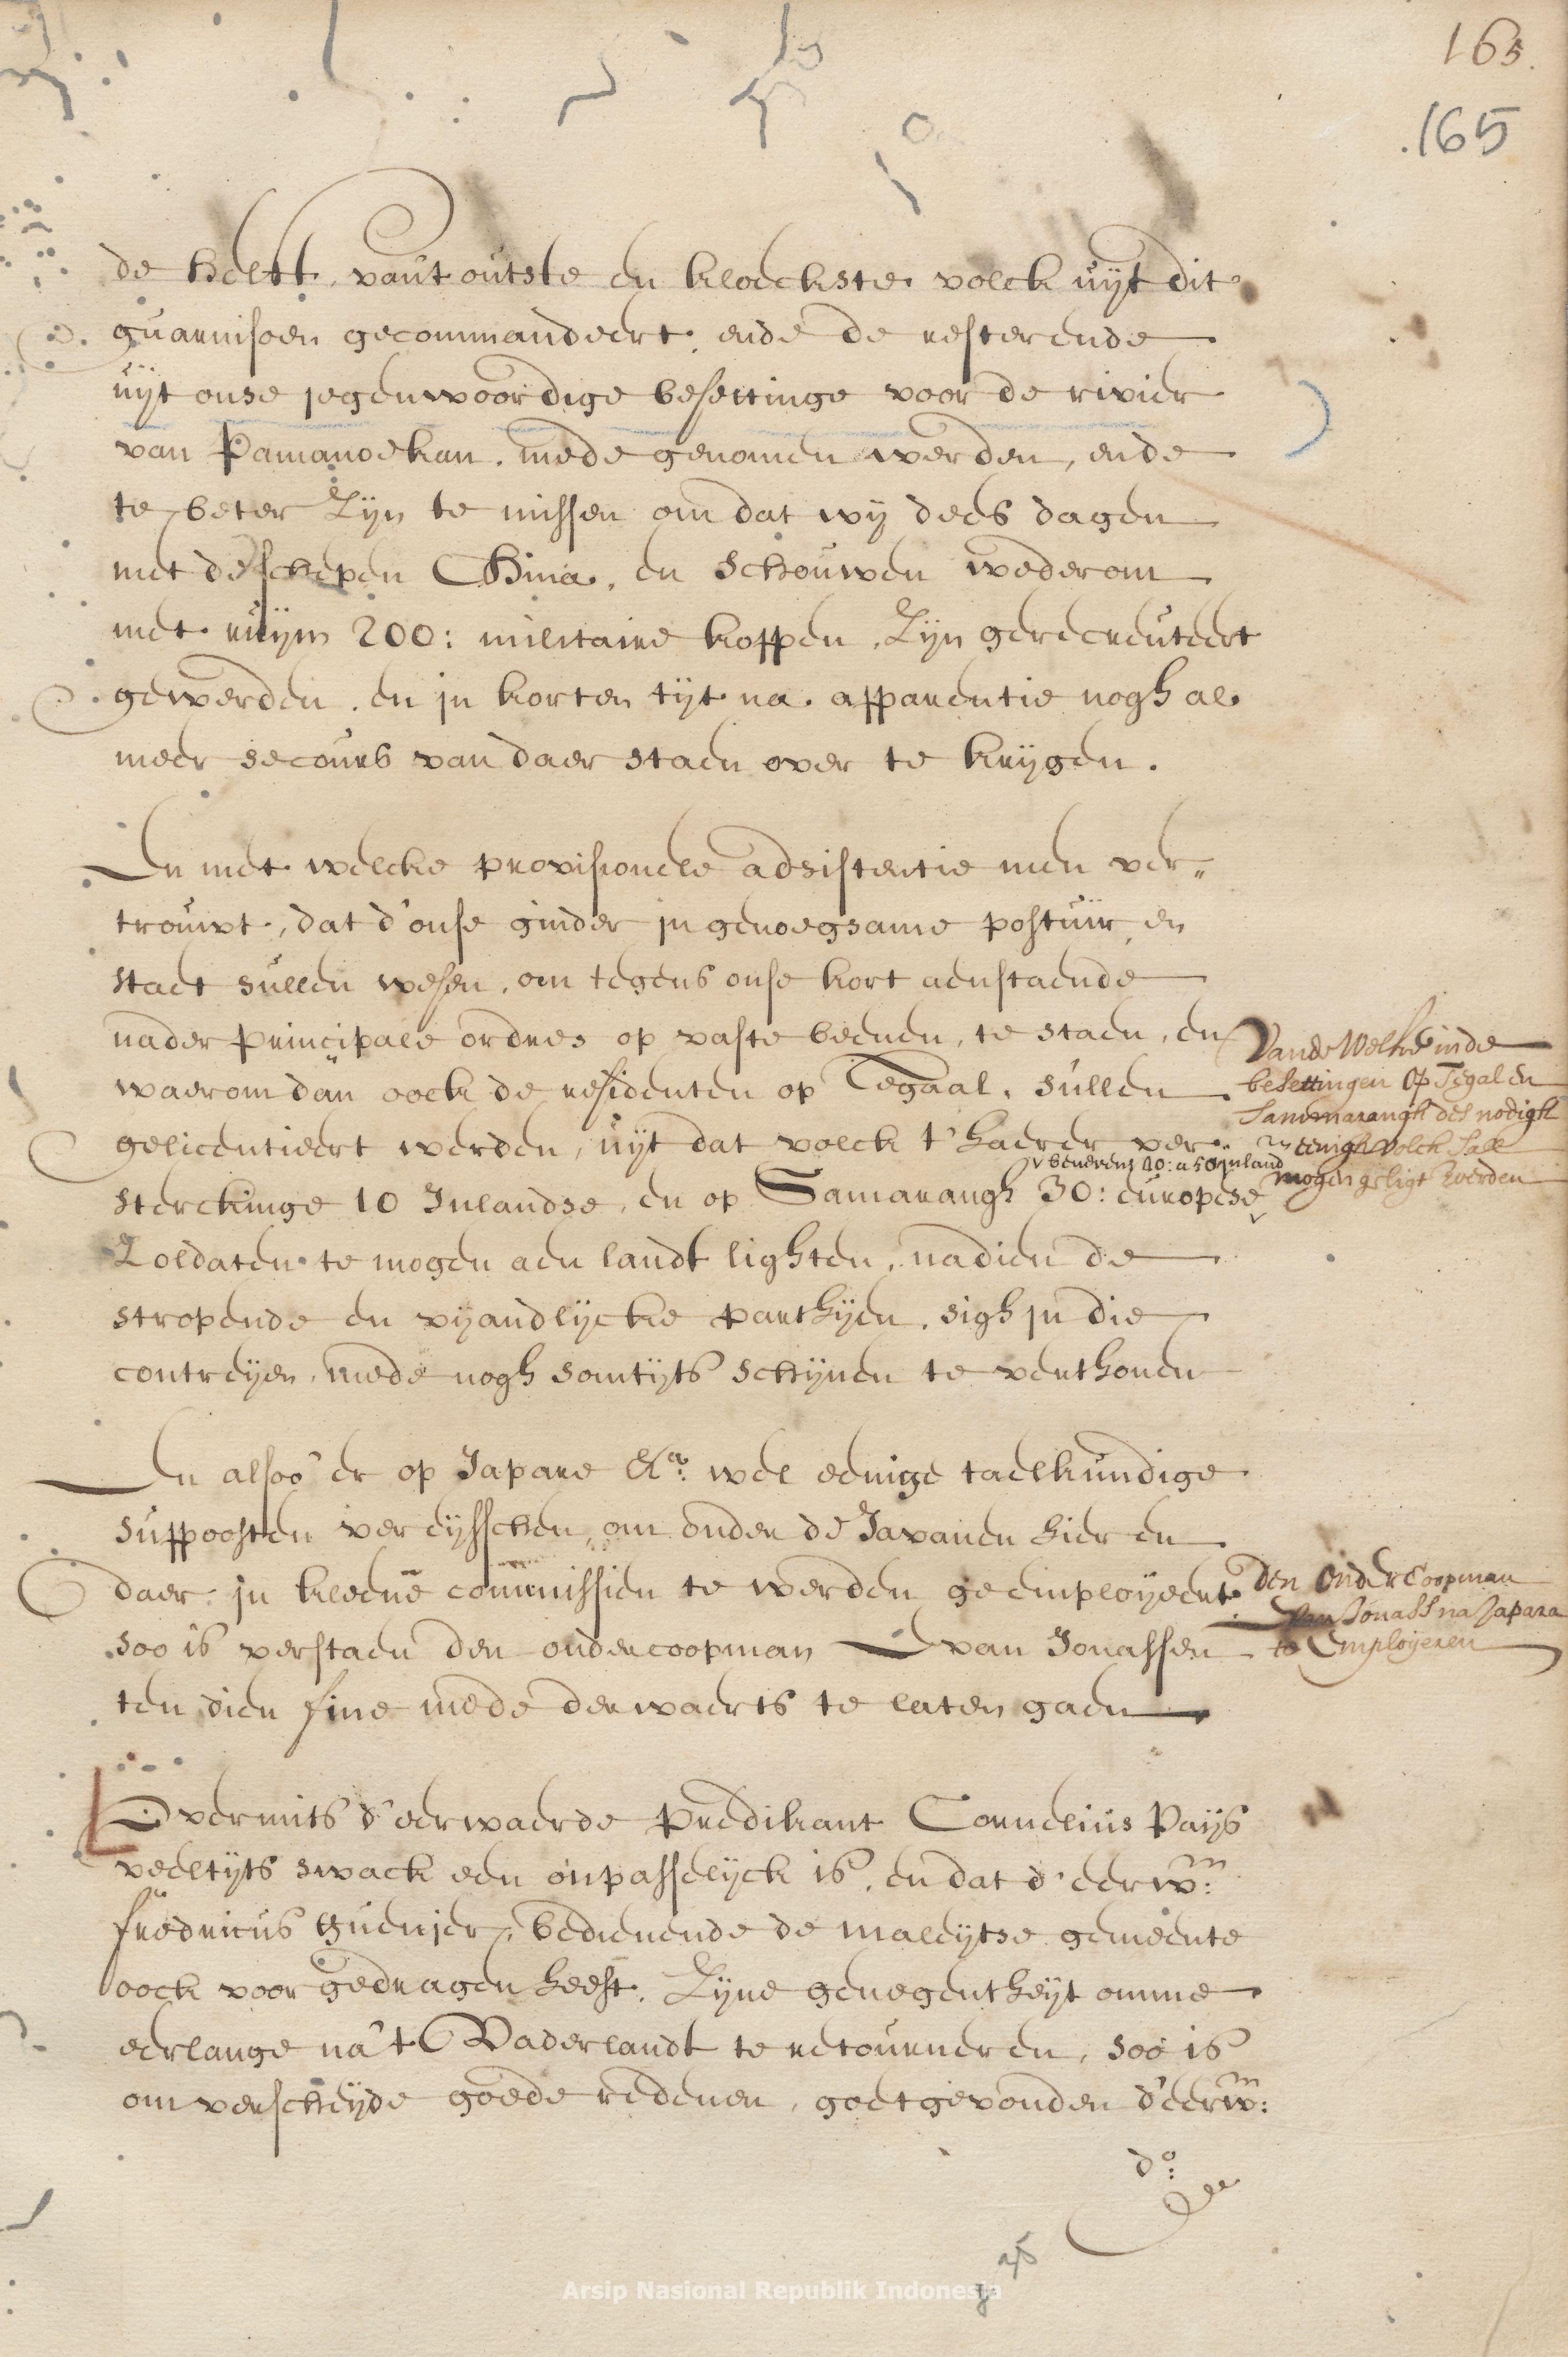 165.
165
de helft van't outste en kloeckste volck uijt dit
guarnisoen gecommandeert, ende de resterende
uijt onse jegenwoordige besettinge voor de rivier
van Pamanoekan, mede genomen werden, ende
te beter zijn te missen om dat wij dees dagen
met de schepen China, en Schouwen wederom
met ruijm 200: militaire koppen, zijn gerecreuteert
gewerden, en in korten tijt na apparentie nogh al
meer secours van daer staen over te krijgen.
En met welcke provisionele adsistentie men ver„
trouwt, dat d'onse ginder in genoegsame postuir en
staet sullen wesen, om tegens onse kort aenstaende
nader principale ordres op vaste beenen, te staen, en
waerom dan oock de residenten op Tegaal, sullen
gelicentieert werden, uijt dat volck t'haerer ver„
v benevens 40: a 50 inland
sterckinge 10 Inlandse, en op Samarangh 30: europese v
Zoldaten te mogen aen landt lighten, nadien de
stropende en vijandlijcke parthijen, sigh in die
contreijen, mede nogh somtijts schijnen te verthonen
Van de Welke inde
besettingen op Tegal en
Sammarangh des nodigh
eenigh volck sal
mogen geligt werden
En alsoo er op Japare &a: wel eenige taelkundige
suppoosten vereijsschen, om onder de Javanen hier en
daer in kleene commissien te werden geemploijeert
soo is verstaen den ondercoopman van Jonassen
ten dien fine mede derwaerts te laten gaen
Den Onder Coopman
van Jonass na Japara
te Emploijeren
Overmits d'eerwaerde predikant Cornelius Paijs
veeltijts swack een onpasselijck is, en dat d'eerw:
fredricus bedienende de maleijtse gemeente
oock voorgedragen heeft, zijne genegentheijt omme
eerlange na't Vaderlandt te retourneren, soo is
om verscheijde goede redenen, goetgevonden d'eerw:
do:
Arsip Nasional Republik Indonesia